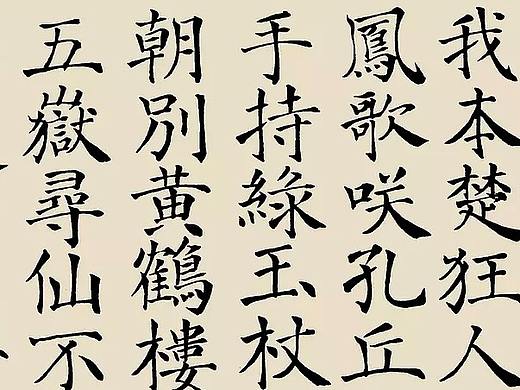 我本楚狂人
鳳歌咲孔丘
手持綠玉杖
朝別黃鶴樓
五嶽尋仙不